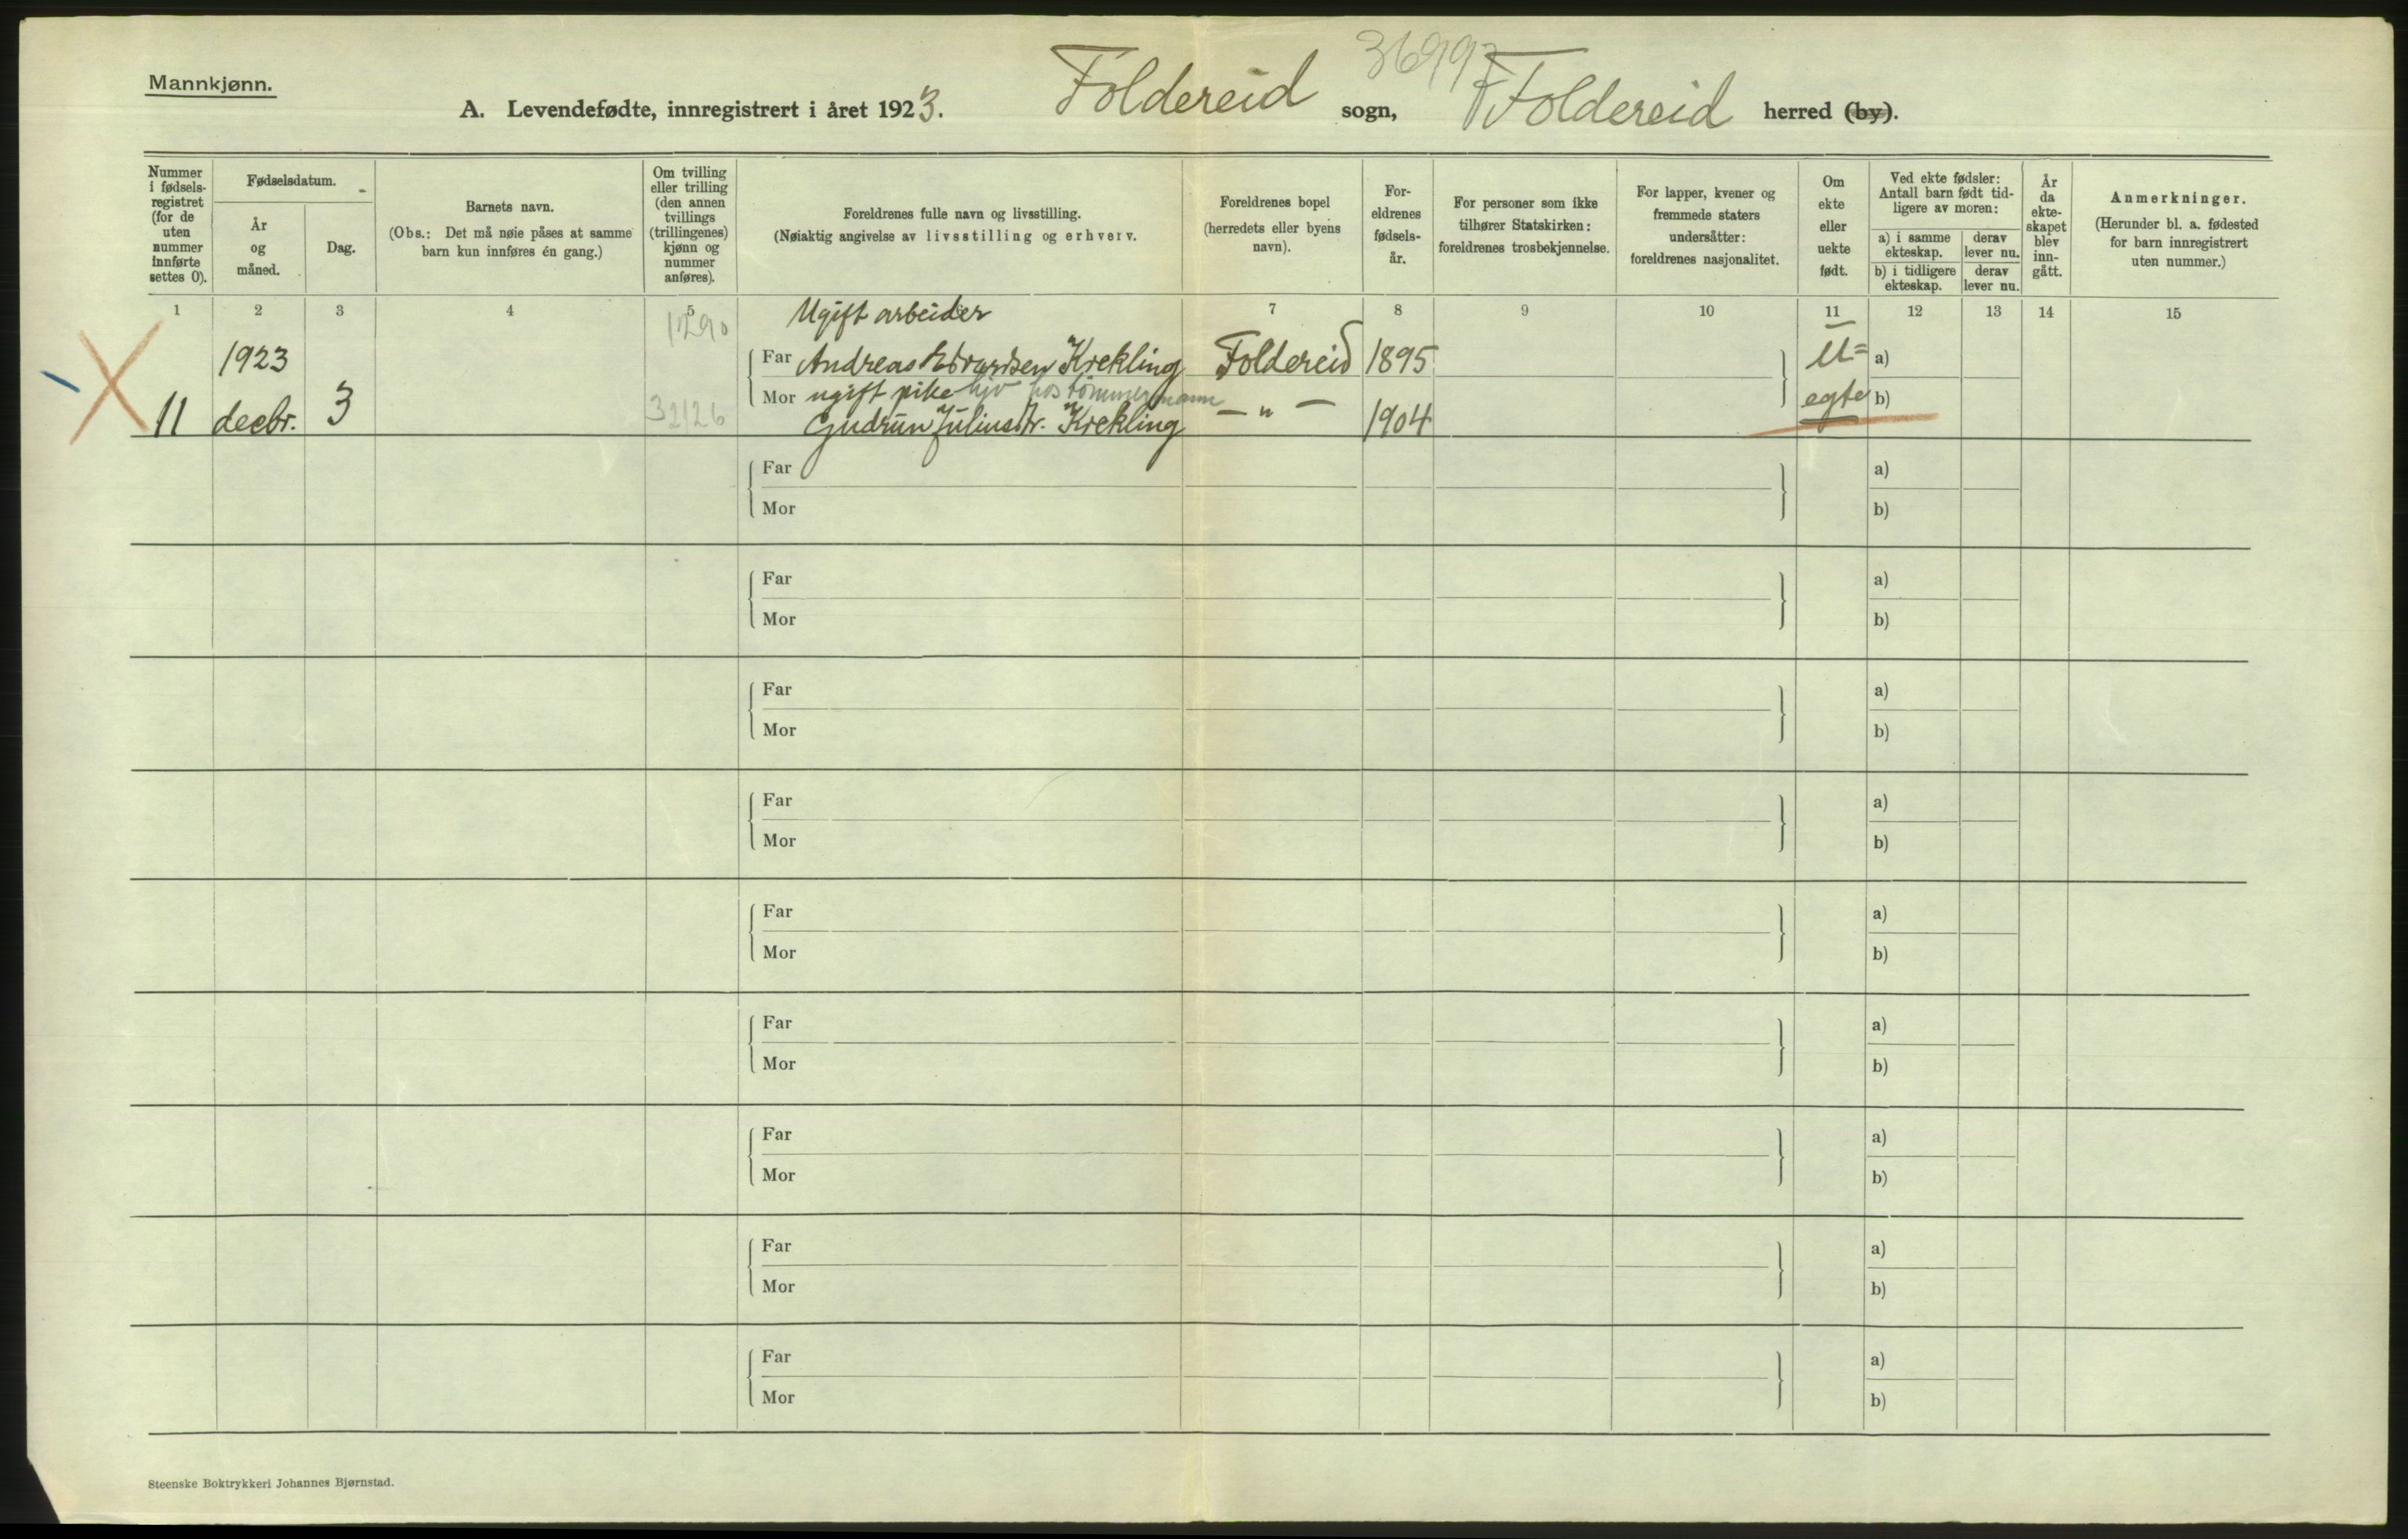 Mannkjønn.
36997
A. Levendefødte, innregistrert i året 1923. Foldereid sogn, Foldereid herred (by).
Nummer i fødselsregistret (for de uten nummer innførte settes 0).
Fødselsdatum.
År og måned.
Dag.
Barnets navn.
(Obs.: Det må nøie påses at samme barn kun innføres én gang.)
Om tvilling eller trilling (den annen tvillings (trillingenes) kjønn og nummer anføres).
Foreldrenes fulle navn og livsstilling.
(Nøiaktig angivelse av livsstilling og erhverv.
Foreldrenes bopel (herredets eller byens navn).
Foreldrenes fødselsår.
For personer som ikke tilhører Statskirken: foreldrenes trosbekjennelse.
For lapper, kvener og fremmede staters undersåtter: foreldrenes nasjonalitet.
Om ekte eller uekte født.
Ved ekte fødsler: Antall barn født tidligere av moren:
a) i samme ekteskap.
derav lever nu.
b) i tidligere ekteskap.
derav lever nu.
År da ekteskapet blev inngått.
Anmerkninger.
(Herunder bl. a. fødested for barn innregistrert uten nummer.)
1 2 3 4 5 7 8 9 10 11 12 13 14 15
Ugift arbeider
1290
1923 Far Andreas Edvardsen Krekling Foldereid 1895 U= a)
Mor ugift pike hjv hos tømmermann
11 decbr. 3 32126 Gudrun Juliusdtr. Krekling — " — 1904 egte b)
Far a)
Mor b)
Far a)
Mor b)
Far a)
Mor b)
Far a)
Mor b)
Far a)
Mor b)
Far a)
Mor b)
Far a)
Mor b)
Far a)
Mor b)
Far a)
Mor b)
Steenske Boktrykkeri Johannes Bjørnstad.